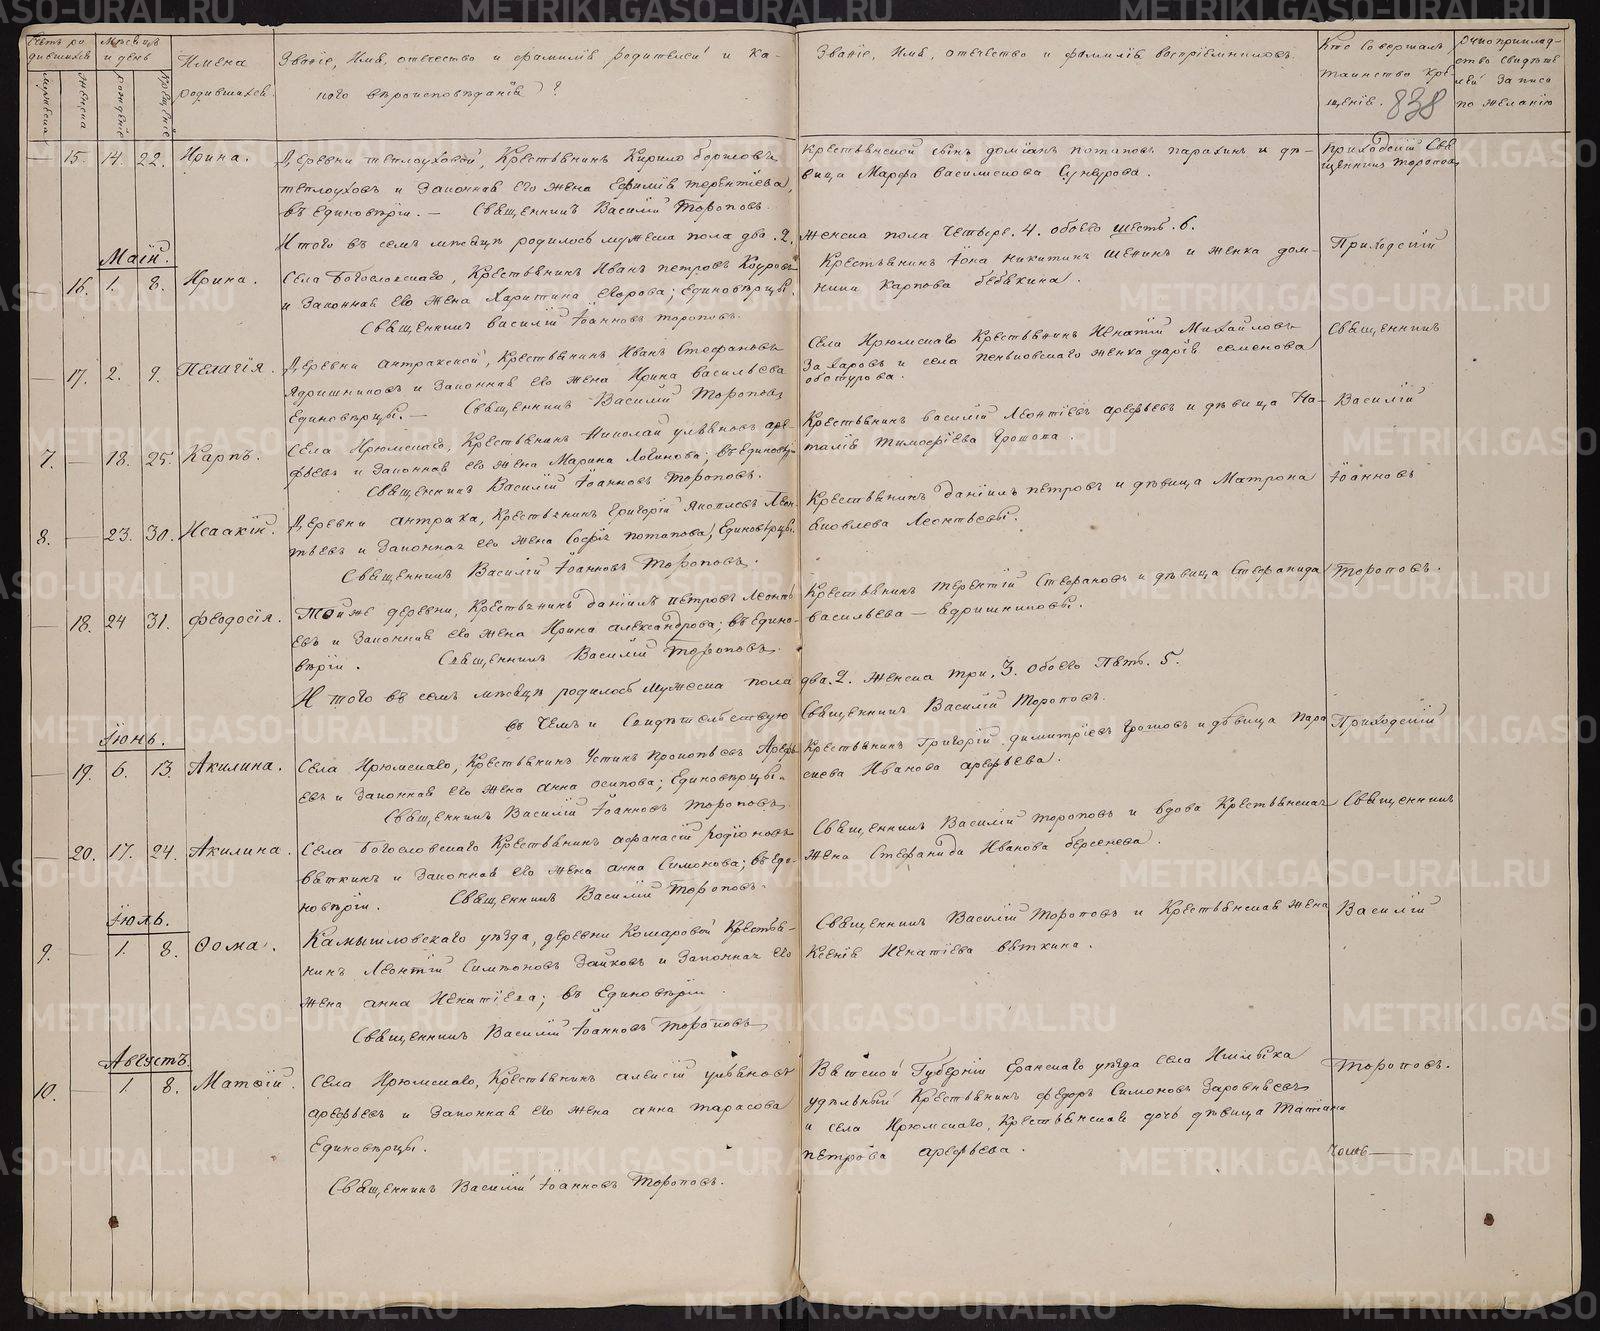 Счетъ родившихся
Мѣсяцъ и день
Имена родившихся.
Званіе, Имя, отечество и фамилія родителей и какого вѣроисповѣданія?
Званіе, Имя, отечество и фамилія воспріемниковъ.
Кто совершалъ таинство крещенія.
838
Рукоприкладство свидѣтелей записи по желанію
Мужеска
Женска
рожденіе
Крещеніе
— 15. 14. 22. Ирина.
Деревни Теплоуховой, Крестьянинъ Кирило
Теплоуховъ и Законная его жена Ефимія терентіева,
въ Единовѣріи. — Священникъ Василій Тороповъ.
Крестьянской сынъ доміанъ потаповъ парахинъ и дѣ-
вица Марфа василискова
Приходскій Свя-
щенникъ Тороповъ
Итого въ семъ мѣсяцѣ родилось мужеска пола два. 2.
женска пола Четыре. 4. обоего шесть. 6.
Маій.
— 16. 1. 8. Ирина.
Села Богословскаго, Крестьянинъ Иванъ петровъ
и Законная его жена Харитина егорова; Единовѣрцы.
Священникъ василій Іоанновъ тороповъ.
Крестьянинъ Іона никитинъ и женка дом-
ники Карпова бебякина.
Приходскій
— 17. 2. 9. Пелагія.
Деревни антракской, Крестьянинъ Иванъ Стефановъ
Ядришниковъ и Законная его жена Ирина васильева
Единовѣрцы. — Священникъ Василій Тороповъ
Села Ирюмскаго Крестьянинъ Игнатій Михайловъ
Захаровъ и села пеньковскаго женка дарія семенова
обстурова.
Священникъ
7. — 18. 25. Карпъ.
Села Ирюмскаго, Крестьянинъ Николай ульяновъ аре-
фьевъ и Законная его жена Марина Логинова; въ единовѣр-
Священникъ Василій Іоанновъ Тороповъ.
Крестьянинъ василій Леонтіевъ арефьевъ и дѣвица На-
талія тимофіева Грошова.
Василій
8. — 23. 30. Исаакій.
Деревни антрака, Крестьянинъ Григорій Яковлевъ Леон-
тьевъ и Законная его жена Софія потапова, Единовѣрцы.
Священникъ Василій Іоанновъ Тороповъ.
Крестьянинъ даніилъ петровъ и дѣвица Матрона
Яковлева Леонтьевы.
Іоанновъ
— 18. 24 31. Феодосія.
Той же деревни, Крестьянинъ даніилъ петровъ Леонть-
евъ и Законная его жена Ирина александрова; въ едино-
вѣріи. Священникъ Василій Тороповъ.
Крестьянинъ терентій Стефановъ и дѣвица Стефанида
васильева — Ядришниковы.
Тороповъ.
Итого въ семъ мѣсяцѣ родилось мужеска пола
два. 2. женска три. 3. обоего Пять. 5.
въ Чемъ и Свидѣтельствую
Священникъ Василій Тороповъ.
Іюнь.
— 19. 6. 13. Акилина.
Села Ирюмскаго, Крестьянинъ Устинъ Прокопьевъ Арефь-
евъ и Законная его жена анна осипова; Единовѣрцы.
Священникъ Василій Іоанновъ Тороповъ
Крестьянинъ Григорій димитріевъ Грошовъ и дѣвица Пара-
скева Иванова арефьева.
Приходскій
— 20. 17. 24. Акилина.
Села Богословскаго Крестьянинъ афанасій родіоновъ
вяткинъ и Законная его жена анна Симонова; въ еди-
новѣріи. Священникъ Василій Тороповъ.
Священникъ Василій тороповъ и вдова Крестьянская
жена Стефанида Иванова берсенева.
Священникъ
Іюль.
9. — 1. 8. Ѳома.
Камышловскаго уѣзда, деревни Комаровой Крестья-
нинъ Леонтій Симоновъ Зайковъ и Законная его
жена анна Игнатіева; въ Единовѣріи
Священникъ Василій Іоанновъ Тороповъ
Священникъ Василій Тороповъ и Крестьянская жена
Ксенія Игнатіева вяткина.
Василій
Августъ.
10. — 1. 8. Матѳій.
Села Ирюмскаго, Крестьянинъ алексій ульяновъ
арефьевъ и Законная его жена анна тарасова
Единовѣрцы.
Священникъ Василій Іоанновъ Тороповъ.
Вятской Губерніи Еранскаго уѣзда села
удѣльный Крестьянинъ федоръ Симоновъ
и села Ирюмскаго, Крестьянская дочь дѣвица Татіана
петрова арефьева.
Тороповъ.